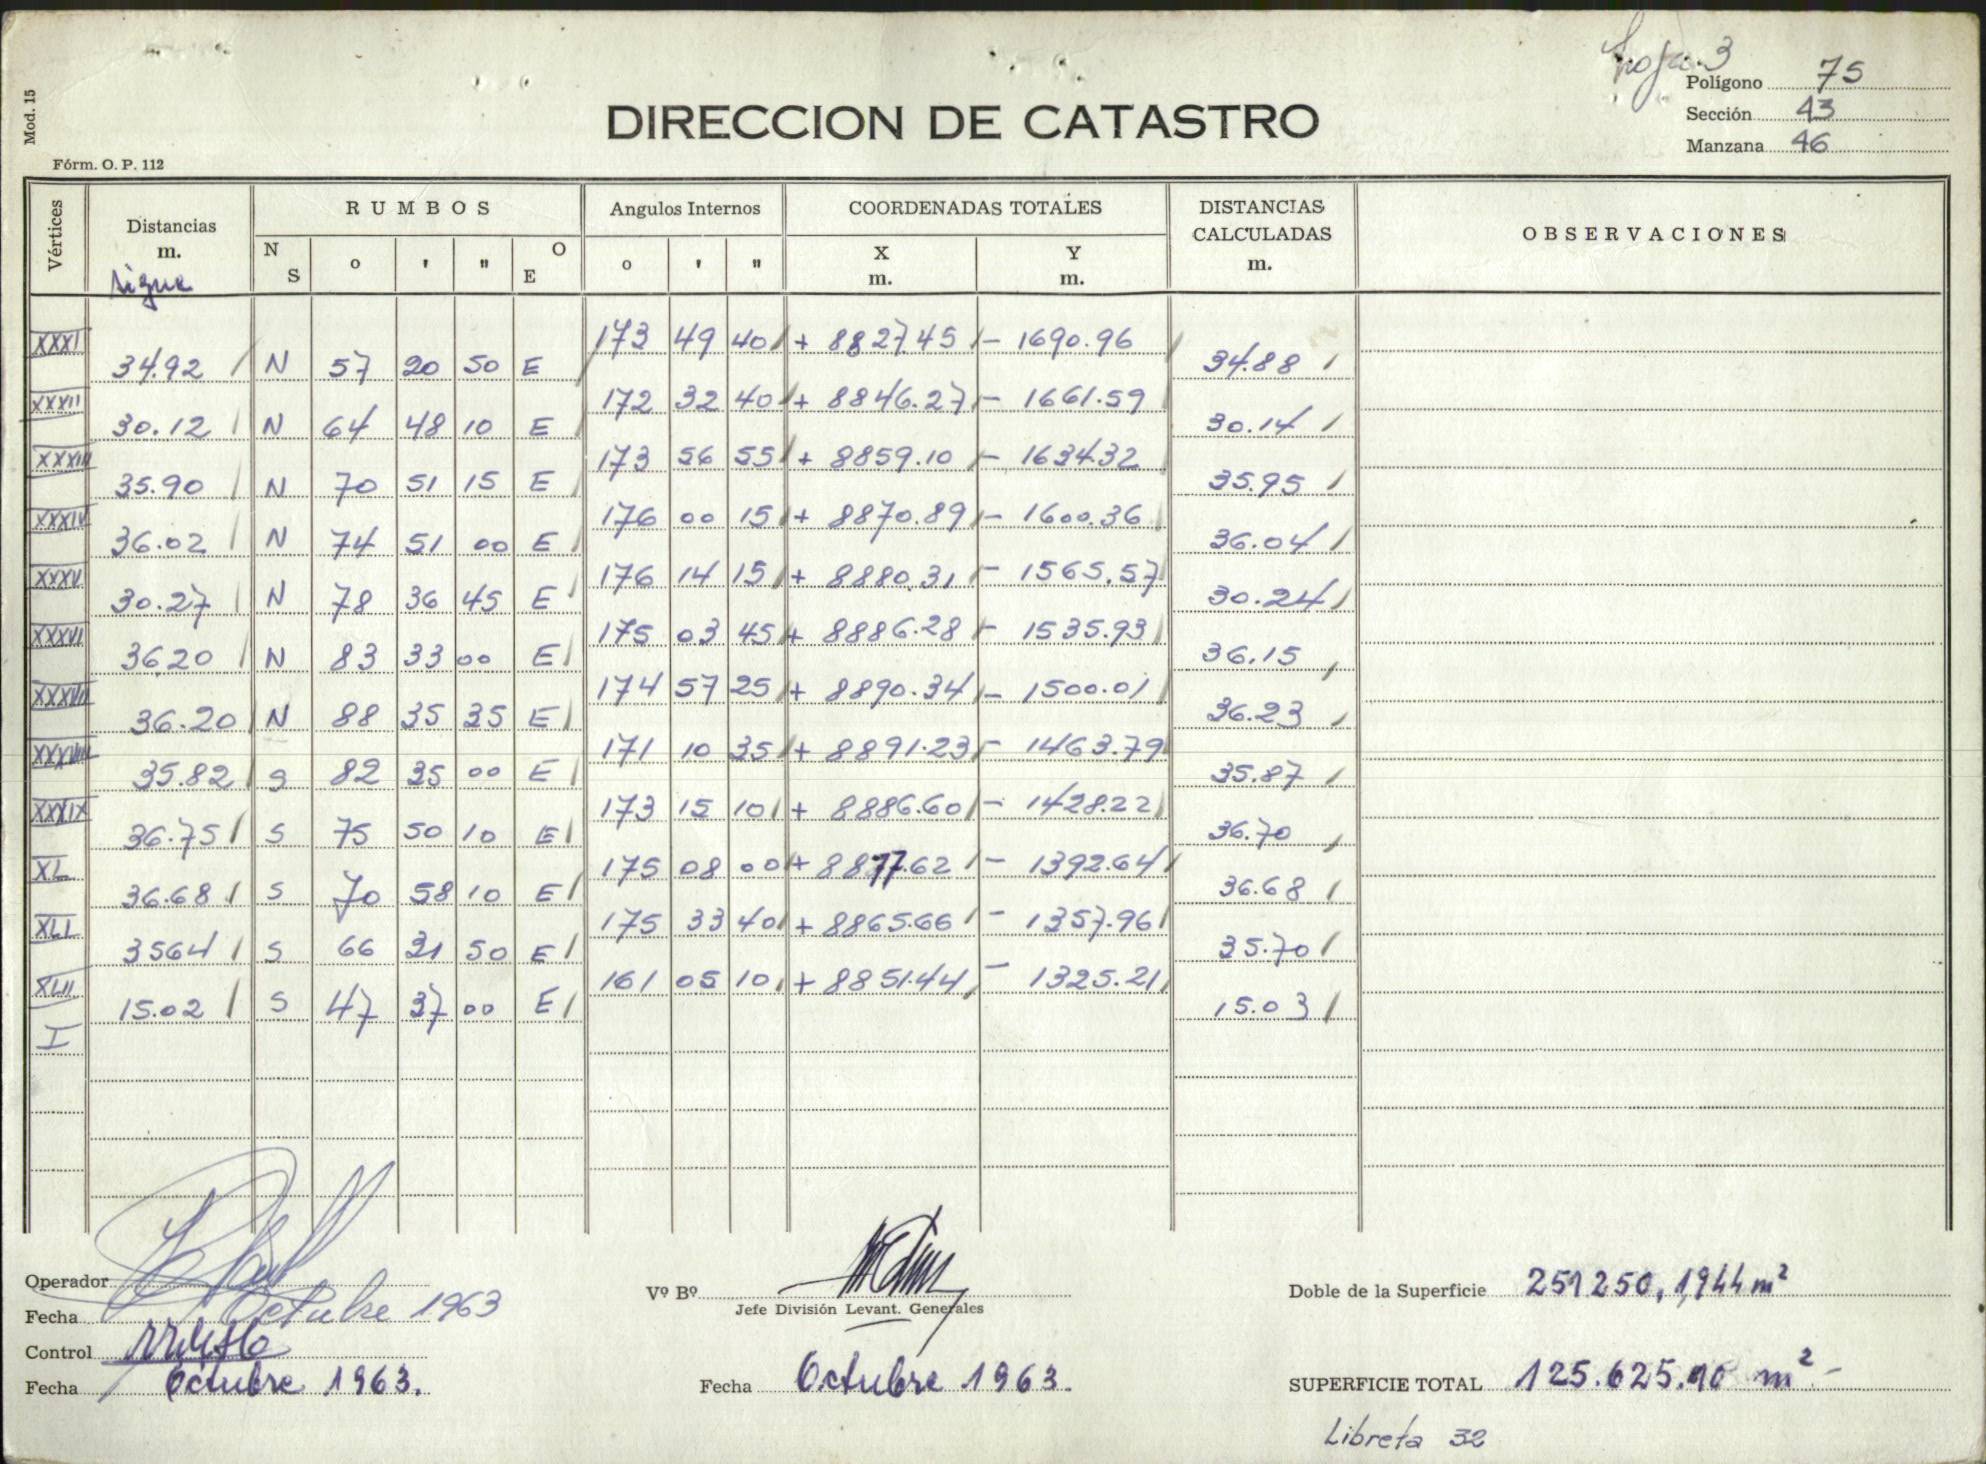 Hoja 3
Mod. 15
Polígono 75
DIRECCION DE CATASTRO
Sección 43
Manzana 46
Fórm. O. P. 112
Vértices Distancias m. RUMBOS Angulos Internos COORDENADAS TOTALES DISTANCIAS CALCULADAS m. OBSERVACIONES
N S o ' " O E o ' " X m. Y m.
sigue
XXXI 173 49 40 + 8827.45 - 1690.96
34.92 N 57 20 50 E 34.88
XXXII 172 32 40 + 8846.27 - 1661.59
30.12 N 64 48 10 E 30.14
XXXIII 173 56 55 + 8859.10 - 1634.32
35.90 N 70 51 15 E 35.95
XXXIV 176 00 15 + 8870.89 - 1600.36
36.02 N 74 51 00 E 36.04
XXXV 176 14 15 + 8880.31 - 1565.57
30.27 N 78 36 45 E 30.24
XXXVI 175 03 45 + 8886.28 - 1535.93
3620 N 83 33 00 E 36.15
XXXVII 174 57 25 + 8890.34 - 1500.01
36.20 N 88 35 35 E 36.23
XXXVIII 171 10 35 + 8891.23 - 1463.79
35.82 S 82 35 00 E 35.87
XXXIX 173 15 10 + 8886.60 - 1428.22
36.75 S 75 50 10 E 36.70
XL 175 08 00 + 8877.62 - 1392.64
36.68 S 70 58 10 E 36.68
XLI 175 33 40 + 8865.66 - 1357.96
3564 S 66 31 50 E 35.70
XLII 161 05 10 + 8851.44 - 1325.21
15.02 S 47 37 00 E 15.03
I
Operador
Fecha Octubre 1963
Control
Fecha Octubre 1963.
Vº Bº
Jefe División Levant. Generales
Fecha Octubre 1963.
Doble de la Superficie 251250,1944 m²
SUPERFICIE TOTAL 125.625.10 m² -
Libreta 32